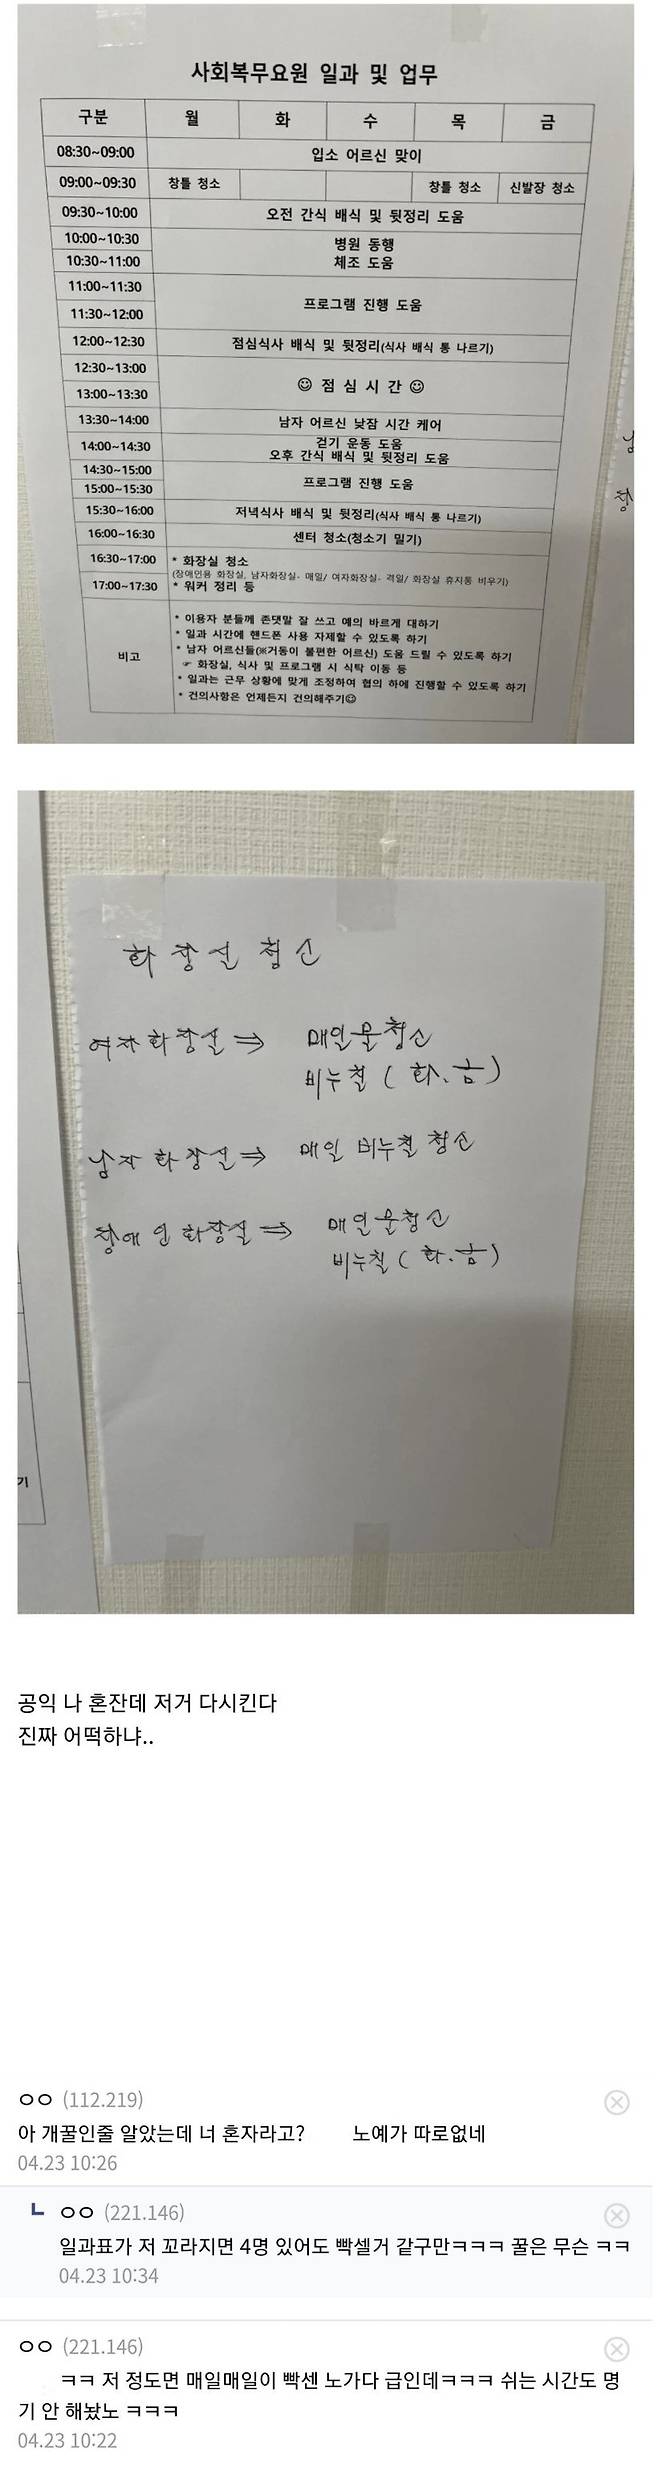 사회복무요원 일과 및 업무
구분 월 화 수 목 금
08:30~09:00 입소 어르신 맞이
09:00~09:30 창틀 청소 창틀 청소 신발장 청소
09:30~10:00 오전 간식 배식 및 뒷정리 도움
10:00~10:30 병원 동행
10:30~11:00 체조 도움
11:00~11:30
프로그램 진행 도움
11:30~12:00
12:00~12:30 점심식사 배식 및 뒷정리(식사 배식 통 나르기)
12:30~13:00
☺ 점 심 시 간 ☺
13:00~13:30
13:30~14:00 남자 어르신 낮잠 시간 케어
14:00~14:30 걷기 운동 도움
오후 간식 배식 및 뒷정리 도움
14:30~15:00
프로그램 진행 도움
15:00~15:30
15:30~16:00 저녁식사 배식 및 뒷정리(식사 배식 통 나르기)
16:00~16:30 센터 청소(청소기 밀기)
16:30~17:00 * 화장실 청소
(장애인용 화장실, 남자화장실- 매일/ 여자화장실- 격일/ 화장실 휴지통 비우기)
17:00~17:30 * 워커 정리 등
비고
* 이용자 분들께 존댓말 잘 쓰고 예의 바르게 대하기
* 일과 시간에 핸드폰 사용 자제할 수 있도록 하기
* 남자 어르신들(※거동이 불편한 어르신) 도움 드릴 수 있도록 하기
☞ 화장실, 식사 및 프로그램 시 식탁 이동 등
* 일과는 근무 상황에 맞게 조정하여 협의 하에 진행할 수 있도록 하기
* 건의사항은 언제든지 건의해주기☺
남
장
화장실 청소
여자화장실 ⇒ 매일물청소
비누칠 ( 화.금 )
남자 화장실 ⇒ 매일 비누칠 청소
장애인 화장실 ⇒ 매일물청소
비누칠 ( 화.금 )
기
공익 나 혼잔데 저거 다시킨다
진짜 어떡하냐..
ㅇㅇ (112.219)
아 개꿀인줄 알았는데 너 혼자라고? 노예가 따로없네
04.23 10:26
ㅇㅇ (221.146)
일과표가 저 꼬라지면 4명 있어도 빡셀거 같구만ㅋㅋㅋ 꿀은 무슨 ㅋㅋ
04.23 10:34
ㅇㅇ (221.146)
ㅋㅋ 저 정도면 매일매일이 빡센 노가다 급인데ㅋㅋㅋ 쉬는 시간도 명
기 안 해놨노 ㅋㅋㅋ
04.23 10:22